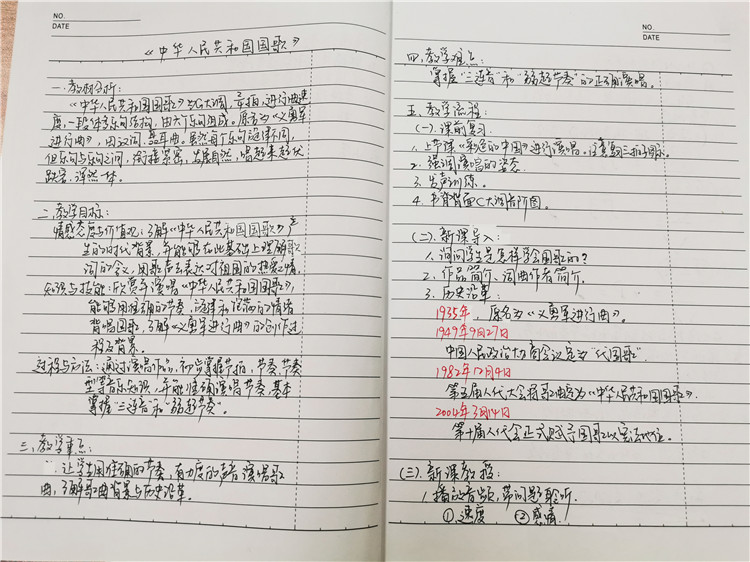 NO.
DATE
《中华人民共和国国歌》
一.教材分析:
《中华人民共和国国歌》为G大调,2/4拍,进行曲速
度,一段体多乐句结构,由六个乐句组成。原名为《义勇军
进行曲》,因此词、曲。虽然每个乐句旋律不同,
但乐句与乐句之间,衔接紧密,发展自然,唱起来起伏
跌宕,浑然一体。
二.教学目标:
情感态度与价值观:了解《中华人民共和国国歌》产
生的时代背景,并能够在此基础上理解歌
词的含义,用歌声去表达对祖国的热爱之情。
知识与技能:欣赏并演唱《中华人民共和国国歌》,
能够用准确的节奏,旋律和饱满的情绪
背唱国歌,了解《义勇军进行曲》的创作过
程及背景。
过程与方法:通过演唱作品,初步掌握节拍,节奏,节奏
型等音乐知识,并能准确演唱节奏,基本
掌握“三连音”和“弱起节奏”。
三.教学重点:
让学生用准确的节奏,有力度的声音演唱歌
曲,了解歌曲背景与历史沿革。
NO.
DATE
四.教学难点:
掌握“三连音”和“弱起节奏”的正确演唱。
五.教学流程:
(一).课前复习
1.上节课《彩色的中国》进行演唱。注意三拍子
2.强调演唱的姿态
3.发声训练。
4.书背面C大调音阶图。
(二).新课导入:
1.询问学生是怎样学会国歌的?
2.作品简介、词曲作者简介。
3.历史沿革:
1935年,原名为《义勇军进行曲》。
1949年9月27日
中国人民政治协商会议定为“代国歌”
1982年12月4日
第五届人代大会将歌曲定为《中华人民共和国国歌》.
2004年3月14日
第十届人代会正式赋予国歌以宪法地位。
(三).新课教授:
1.播放音频,带问题聆听.
①.速度 ②.感情.